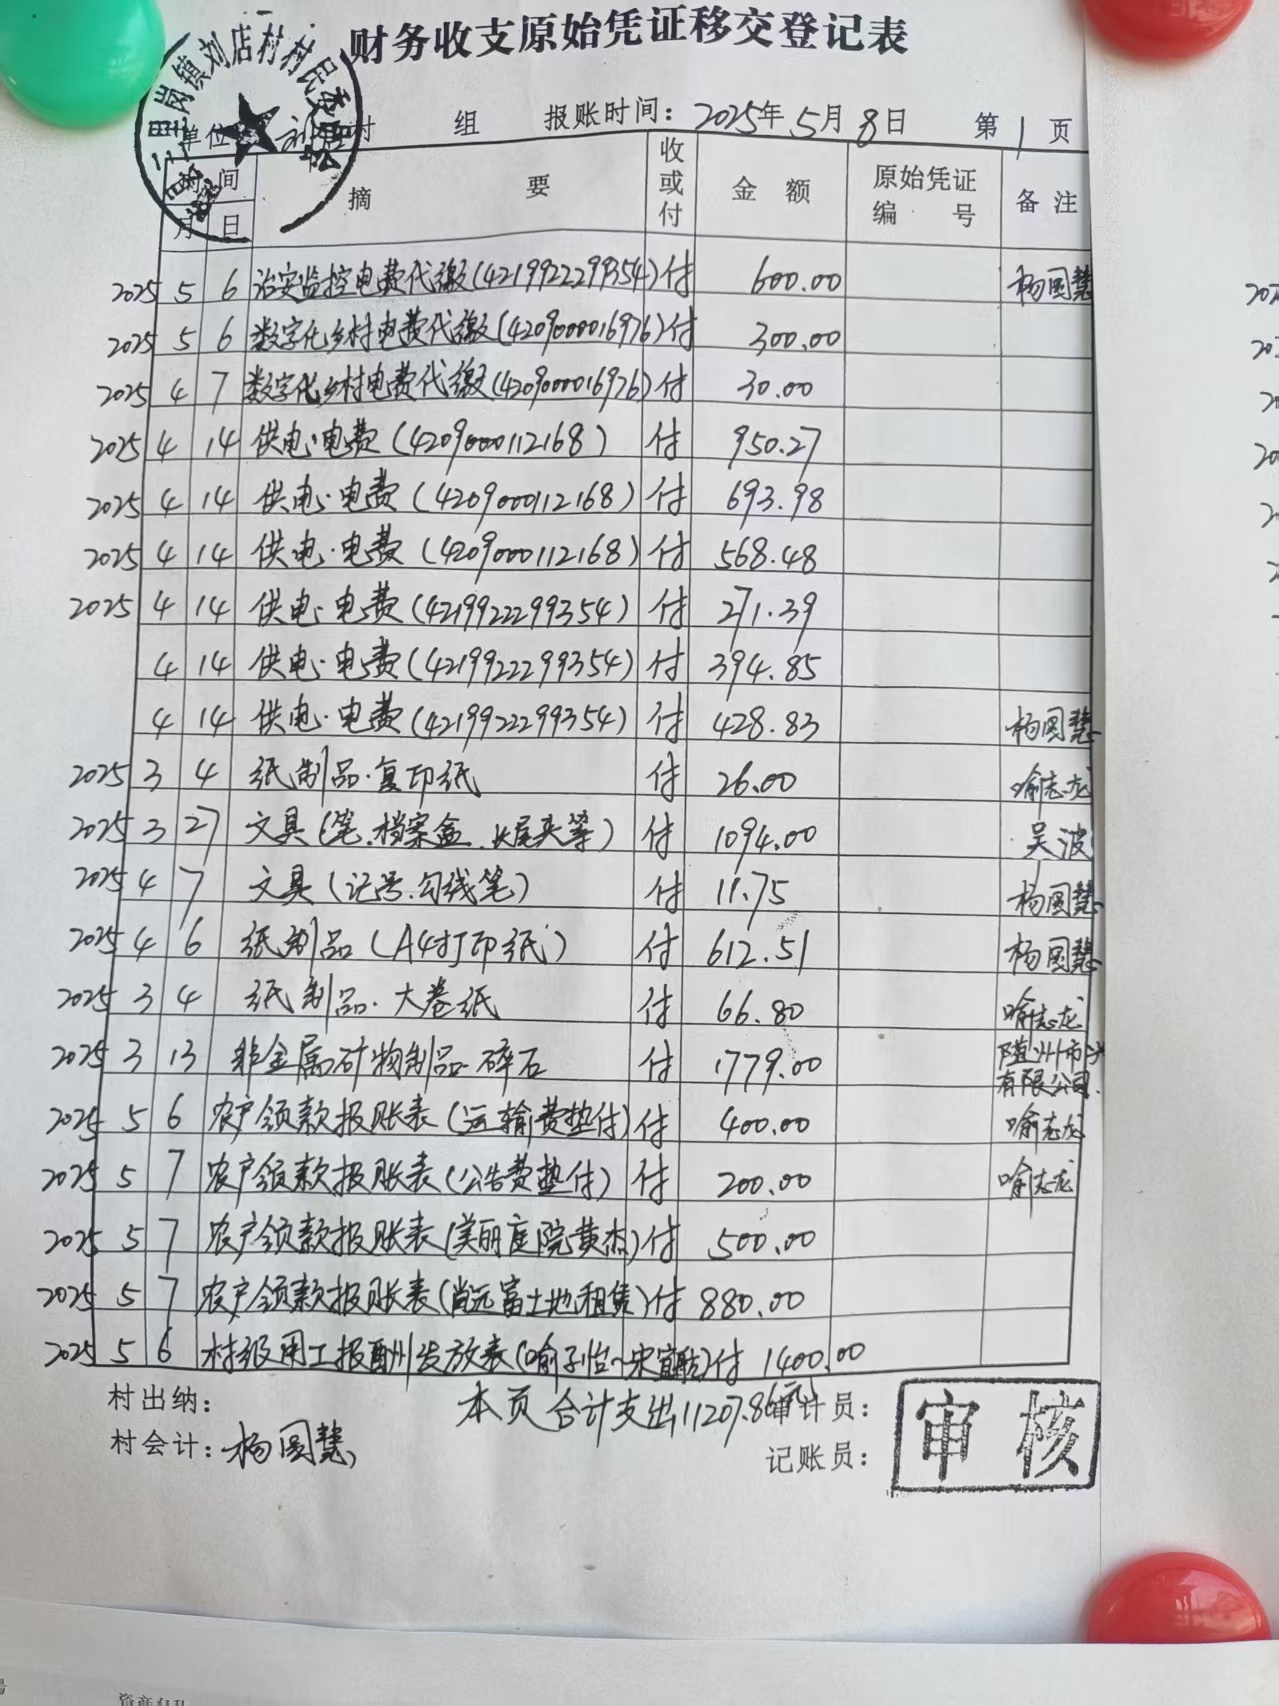 财务收支原始凭证移交登记表
岗镇刘店村村民委员会
单位 村 组 报账时间：2025年5月8日 第1页
时间 摘要 收或付 金额 原始凭证编号 备注
月 日
2025 5 6 治安监控电费代缴(4219922299354) 付 600.00 杨圆慧
2025 5 6 数字化乡村电费代缴(4209000016976) 付 300.00
2025 4 7 数字化乡村电费代缴(4209000016976) 付 30.00
2025 4 14 供电·电费(4209000112168) 付 950.27
2025 4 14 供电·电费(4209000112168) 付 693.98
2025 4 14 供电·电费(4209000112168) 付 568.48
2025 4 14 供电·电费(4219922299354) 付 271.39
4 14 供电·电费(4219922299354) 付 394.85
4 14 供电·电费(4219922299354) 付 428.83 杨圆慧
2025 3 4 纸制品·复印纸 付 26.00 喻志龙
2025 3 27 文具(笔.档案盒.长尾夹等) 付 1094.00 吴波
2025 4 7 文具(记号.勾线笔) 付 11.75 杨圆慧
2025 4 6 纸制品(A4打印纸) 付 612.51 杨圆慧
2025 3 4 纸制品·大卷纸 付 66.80 喻志龙
2025 3 13 非金属矿物制品·碎石 付 1779.00 随州市 有限公司.
2025 5 6 农户领款报账表(运输费垫付) 付 400.00 喻志龙
2025 5 7 农户领款报账表(公告费垫付) 付 200.00 喻志龙
2025 5 7 农户领款报账表(美丽庭院黄杰) 付 500.00
2025 5 7 农户领款报账表(肖远富土地租赁) 付 880.00
2025 5 6 村级用工报酬发放表(喻子怡~宋宜) 付 1400.00
村出纳： 本页合计支出11207.86元 审计员：
村会计：杨圆慧 记账员：
审核